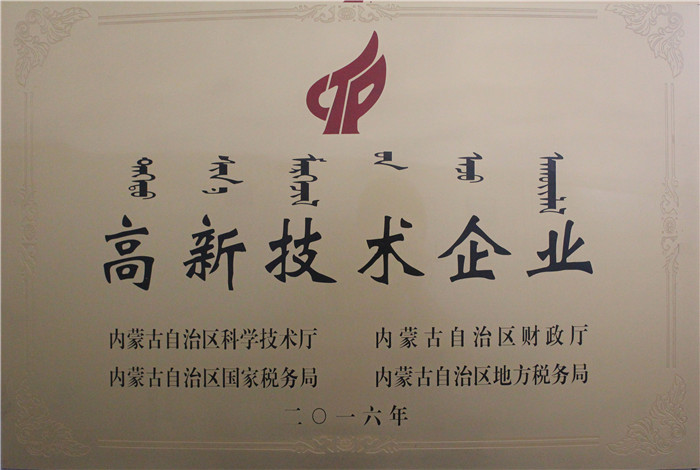 CTP
高新技术企业
内蒙古自治区科学技术厅 内蒙古自治区财政厅
内蒙古自治区国家税务局 内蒙古自治区地方税务局
二〇一六年